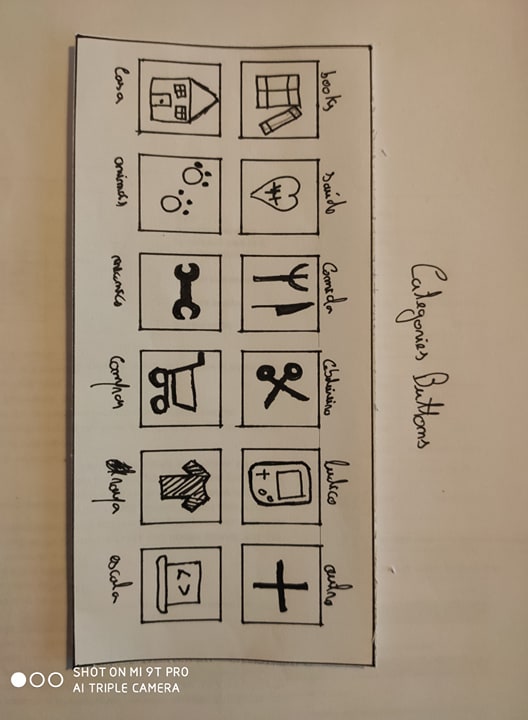 Categories Buttons
books saúde Comida Cabeleireiro ludico outro
< >
Casa animais mecanico Compras roupa escola
SHOT ON MI 9T PRO
AI TRIPLE CAMERA